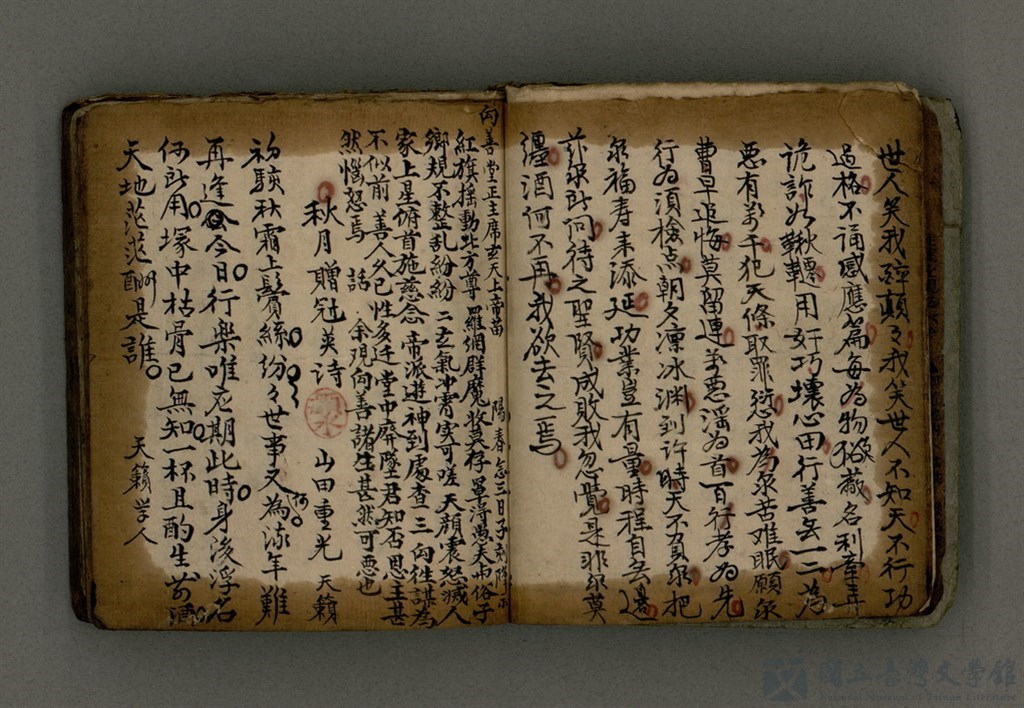 世人笑我經顛々我笑世人不知天不行功
過格不誦感應篇每為物慾蔽名利牽弄
詭詐如鞦韆用奸巧壞心田行善無一二為
惡有萬千犯天條取罪愆我為眾苦難眠願眾
曹早追悔莫留連萬惡淫為首百行孝為先
行為須檢点朝夕凜冰淵到許時天不負眾把
眾福寿来添延功業豈有量時程自無邊
茲眾所问待之聖賢成敗我忽覺是非眾莫
纏酒何不再我欲去之焉
向善堂正主席玄天上帝 陽春念三日子刻降
紅旗搖動北方尊 羅網群魔收盡存 單淂愚夫而俗子
鄉規不整乱紛紛 二五氣冲霄实可嗟 天顏震怒滅人
家上星俯首施慈念 帝派遊神到處查 三 向往謀為
不似前 善人久已性多迁 堂中廢墜君知否 思主甚
然惱怒焉 話 余現向善諸生甚然可惡也
秋月贈冠英詩 山田重光 天籟
初驗秋霜上鬢絲紛々世事又為何流年難
再逢今日行樂唯君期此時身後浮名
何所用塚中枯骨已無知一杯且酌生前酒
天地茫茫酬是誰 天籟学人
國立臺灣文學館
National Museum of Taiwan Literature